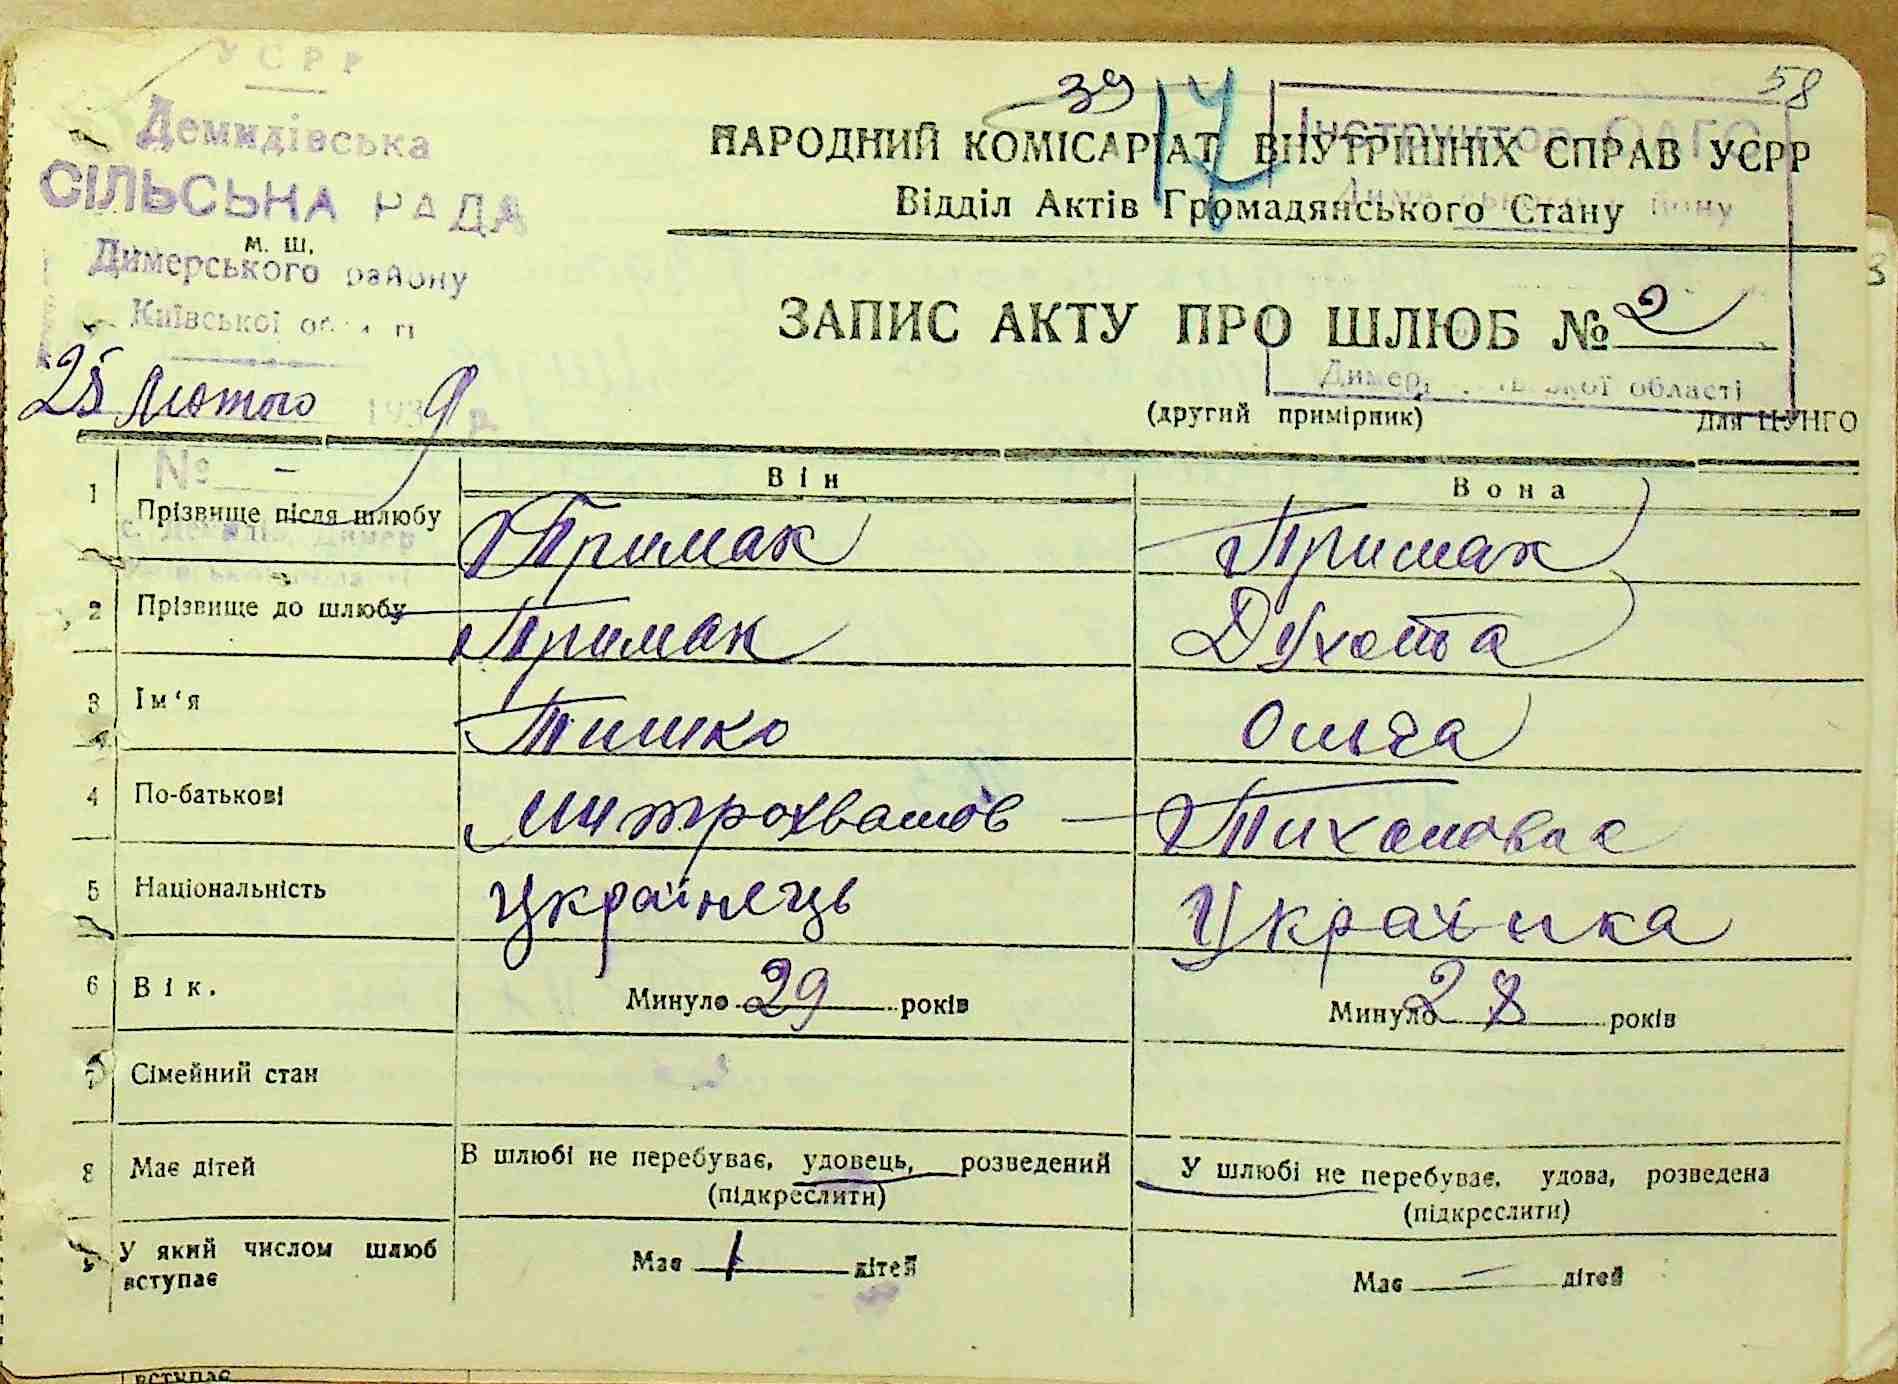 УСРР
39 17 58
Демидівська
СІЛЬСЬКА РАДА
м. ш.
Димерського району
Київської
НАРОДНИЙ КОМІСАРІАТ ВНУТРІШНІХ СПРАВ УСРР
Інструктор
Відділ Актів Громадянського Стану
ЗАПИС АКТУ ПРО ШЛЮБ № 2
області
25 Лютого 1939 р.
(другий примірник) Для ЦУНГО
№ -
Він Вона
1 Прізвище після шлюбу Примак Примак
2 Прізвище до шлюбу Примак Духота
3 Ім'я Тишко Ольга
4 По-батькові Митрохванов Тихоновна
5 Національність Українець Українка
6 Вік. Минуло 29 років Минуло 28 років
7 Сімейний стан
8 Має дітей В шлюбі не перебуває, удовець, розведений У шлюбі не перебуває, удова, розведена
(підкреслити) (підкреслити)
9 У який числом шлюб вступає Має 1 дітей Має — дітей
вступає